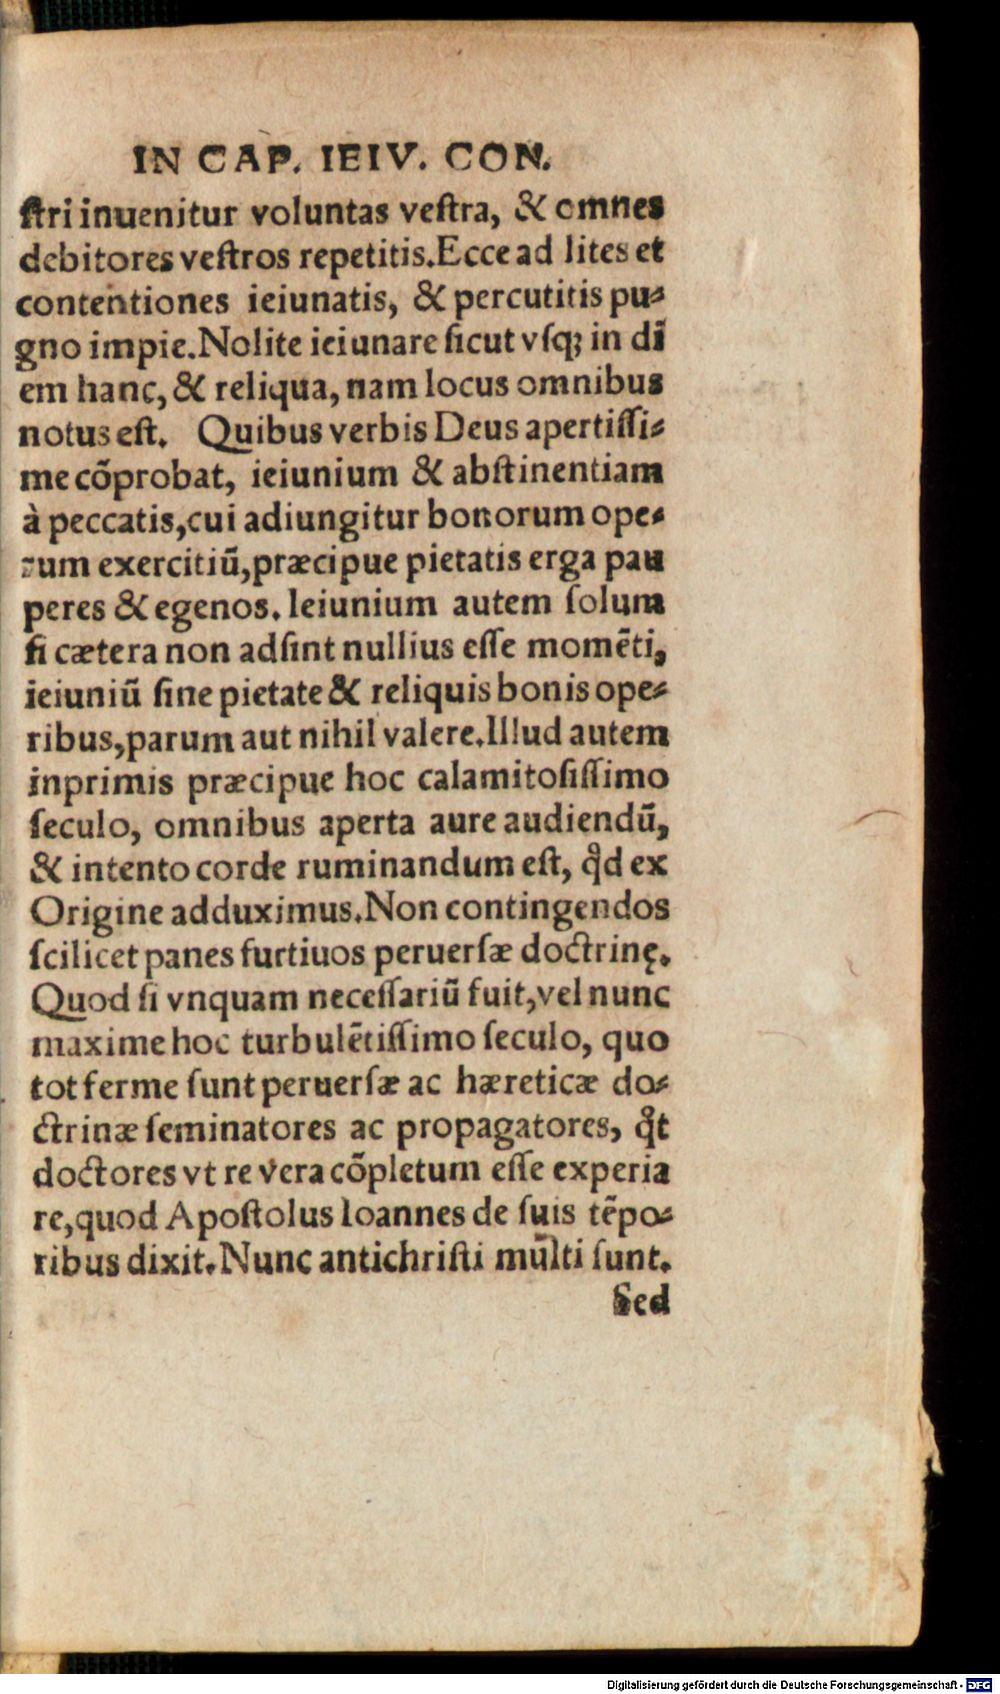 IN CAP. IEIV. CON.
ſtri inuenitur voluntas veſtra, & omnes
debitores veſtros repetitis. Ecce ad lites et
contentiones ieiunatis, & percutitis pu⸗
gno impie. Nolite ieiunare ſicut vſq; in di
em hanc, & reliqua, nam locus omnibus
notus eſt. Quibus verbis Deus apertiſſi⸗
me cõprobat, ieiunium & abſtinentiam
à peccatis, cui adiungitur bonorum ope⸗
rum exercitiũ, præcipue pietatis erga pau
peres & egenos. Ieiunium autem ſolum
ſi cætera non adſint nullius eſſe momẽti,
ieiuniũ ſine pietate & reliquis bonis ope⸗
ribus, parum aut nihil valere. Illud autem
inprimis præcipue hoc calamitoſiſſimo
ſeculo, omnibus aperta aure audiendũ,
& intento corde ruminandum eſt, qd̛ ex
Origine adduximus. Non contingendos
ſcilicet panes furtiuos peruerſæ doctrinę.
Quod ſi vnquam neceſſariũ fuit, vel nunc
maxime hoc turbulẽtiſſimo ſeculo, quo
tot ferme ſunt peruerſæ ac hæreticæ do⸗
ctrinæ ſeminatores ac propagatores, qͦt
doctores vt re vera cõpletum eſſe experia
re, quod Apoſtolus Ioannes de ſuis tẽpo⸗
ribus dixit. Nunc antichriſti multi ſunt.
Sed
Digitalisierung gefördert durch die Deutsche Forschungsgemeinschaft - DFG